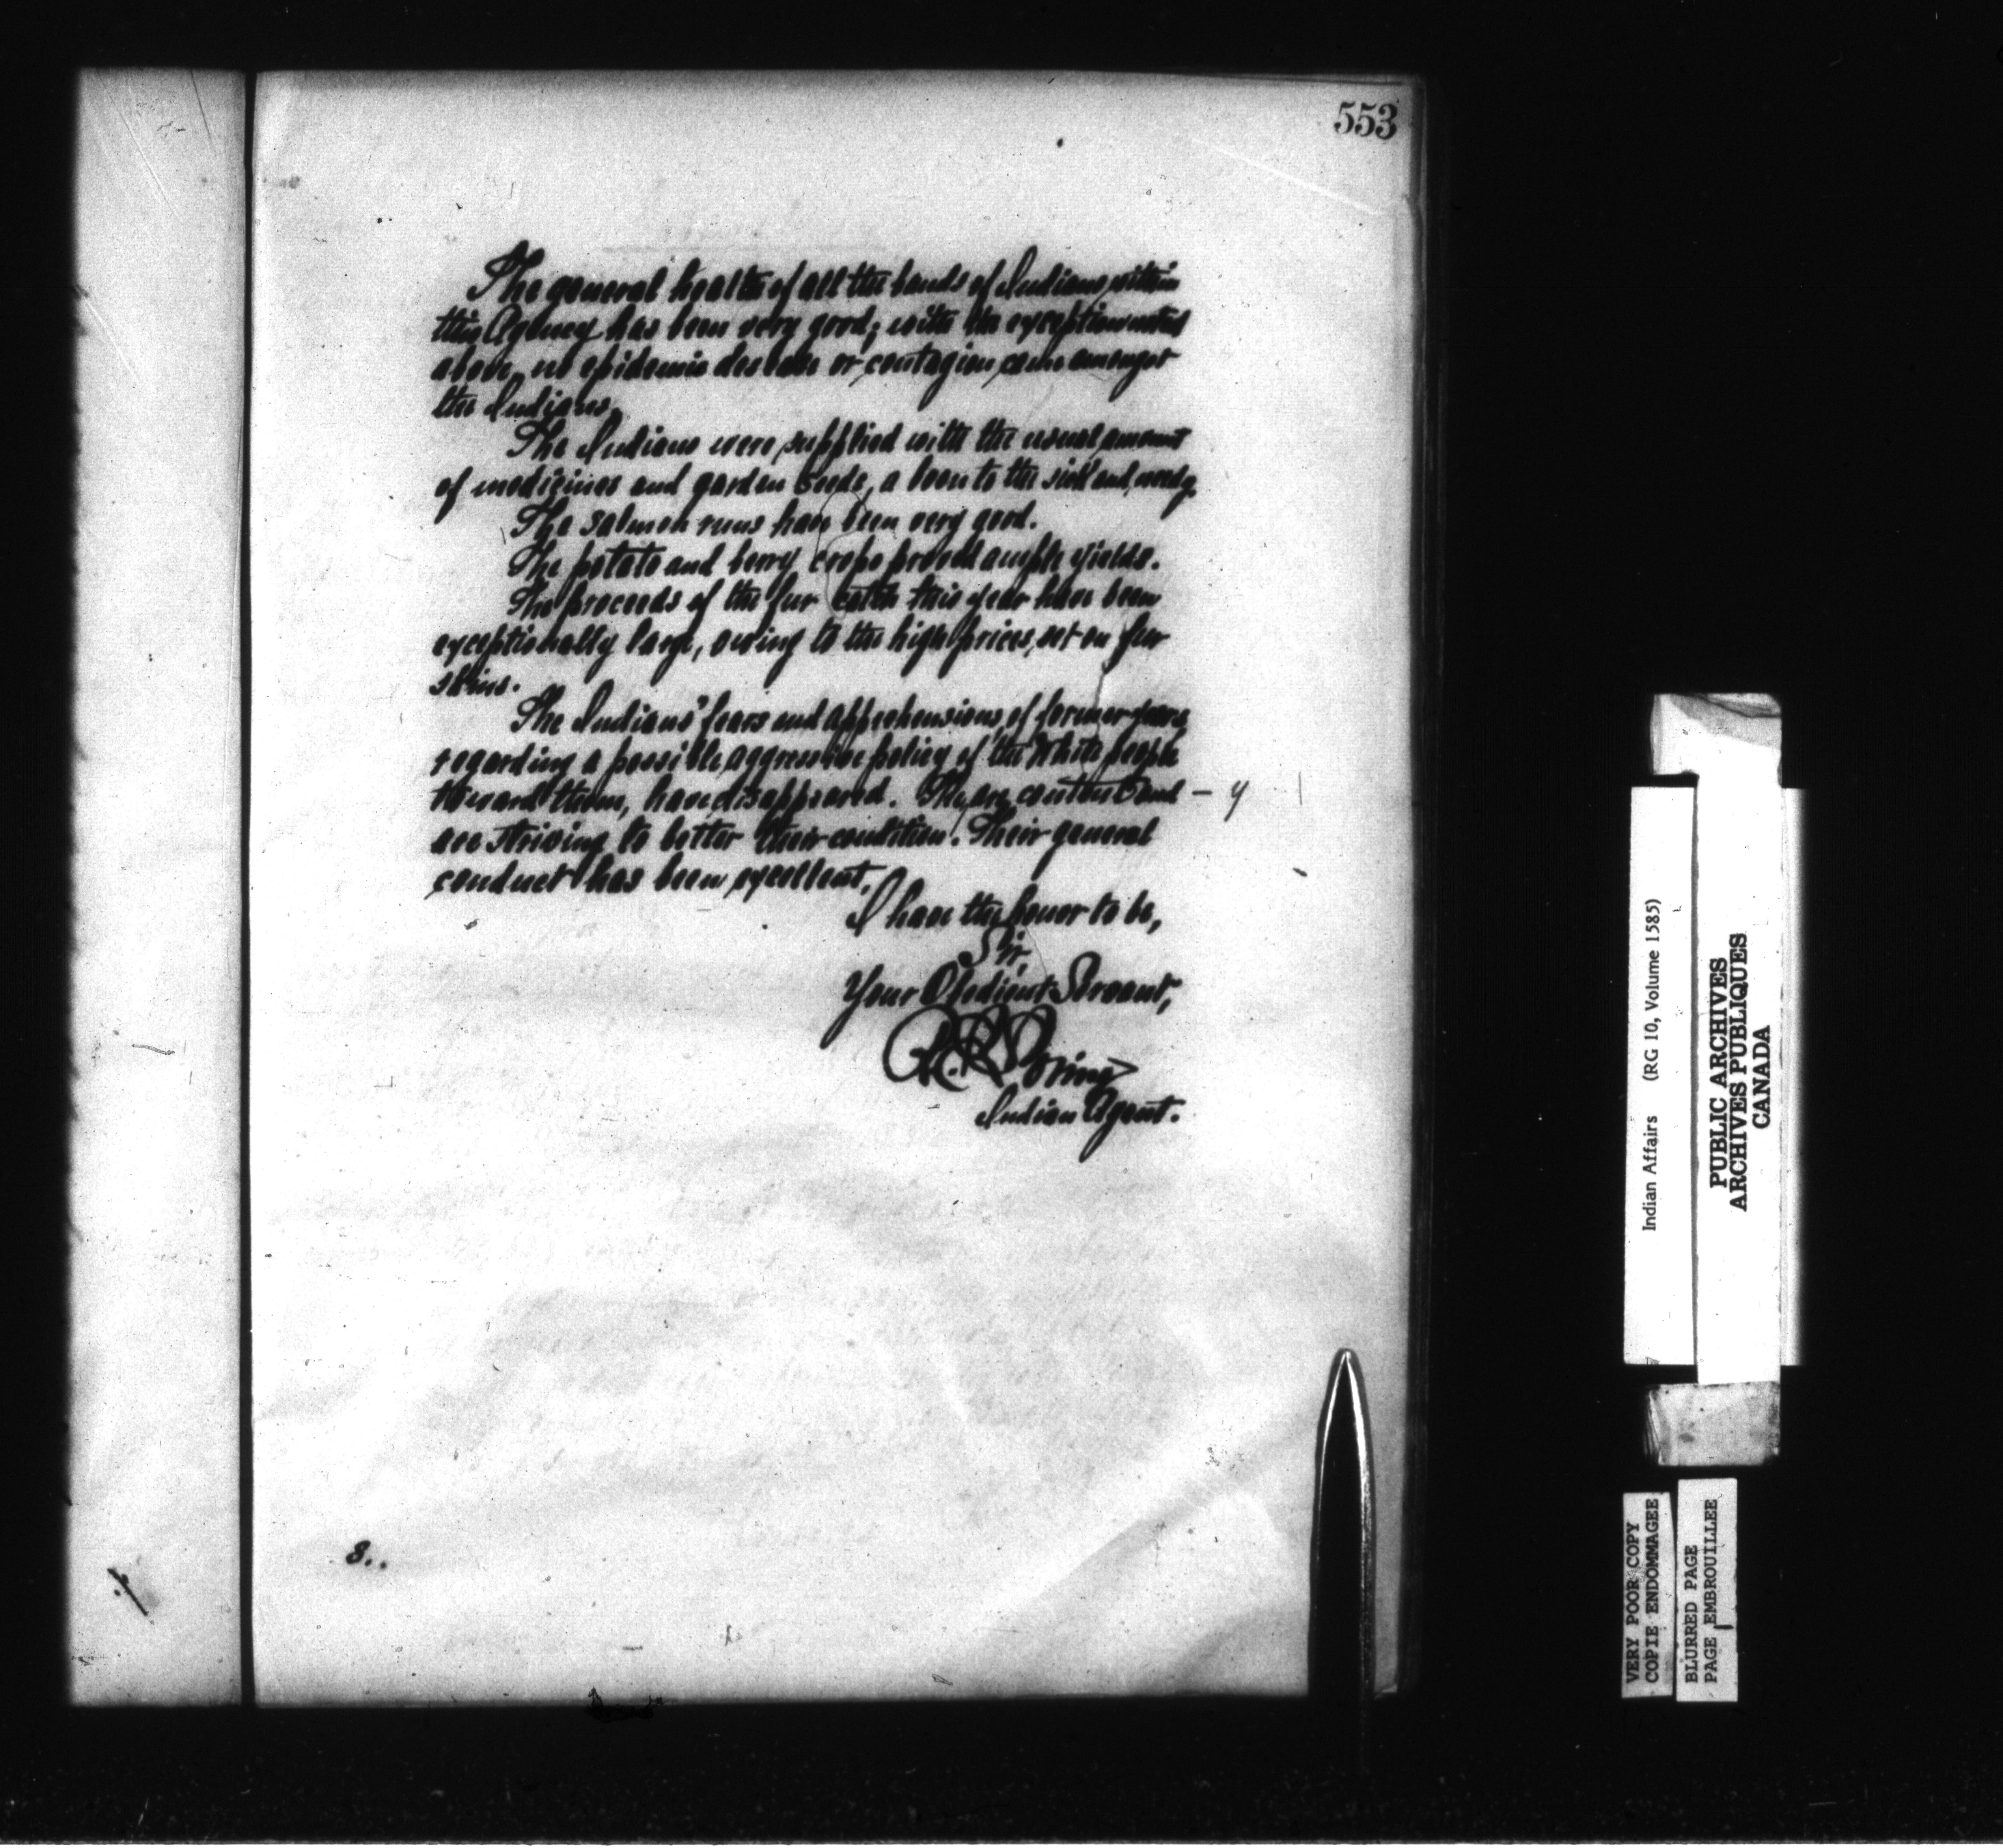 553
The general health of all the bands of Indians within
this Agency has been very good; with the exception noted
above, no epidemic desease or contagion came amongst
the Indians.
The Indians were supplied with the usual amount
of medicines and garden seeds, a boon to the sick and needy.
The salmon runs have been very good.
The potato and berry crops proved ample yields.
The proceeds of the fur catch this year have been
exceptionally large, owing to the high prices, set on fur
skins.
The Indians' fears and apprehensions, of former years,
regarding a possible, aggressive policy of the White people
toward them, have disappeared. They are content and – y
are striving to better their condition. Their general
conduct has been excellent.
I have the honor to be,
Sir,
Your Obedient Servant,
R.E. Loring
Indian Agent.
8..
Indian Affairs (RG 10, Volume 1585)
PUBLIC ARCHIVES
ARCHIVES PUBLIQUES
CANADA
VERY POOR COPY
COPIE ENDOMMAGEE
BLURRED PAGE
PAGE EMBROUILLEE